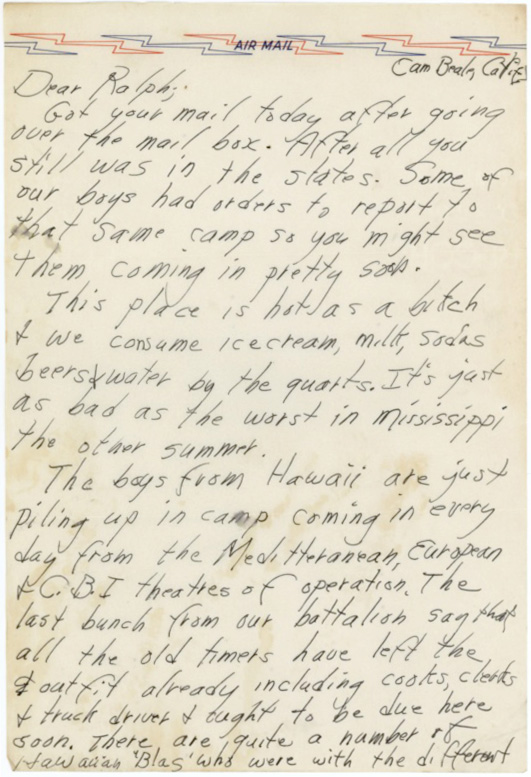 AIR MAIL
Cam Beale, Calif
Dear Ralph;
Got your mail today after going
over the mail box. After all you
still was in the states. Some of
our boys had orders to report to
that same camp so you might see
them coming in pretty soon.
This place is hot as a bitch
& we consume icecream, milk, sodas
beers & water by the quarts. It's just
as bad as the worst in Mississippi
the other summer.
The boys from Hawaii are just
piling up in camp coming in every
day from the Meditteranean, European
& C.B.I theatres of operation. The
last bunch from our battalion say that
all the old timers have left the
outfit already including cooks, clerks
& truck driver & ought to be due here
soon. There are quite a number of
Hawaiian "Blas" who were with the different